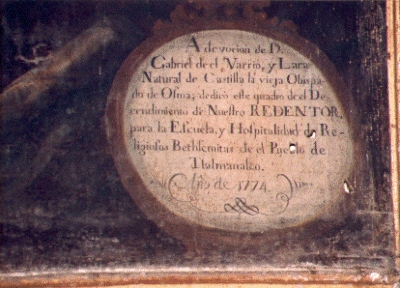 A devocion de D.
Gabriel de el Varrio, y Lara
Natural de Castilla la vieja Obispa-
do de Osma; dedicó este quadro de el De
cendimiento de Nuestro REDENTOR,
para la Escuela, y Hospitalidad de Re-
ligiosos Bethlemitas de el Pueblo de
Tlalmanalco.
Año de 1774